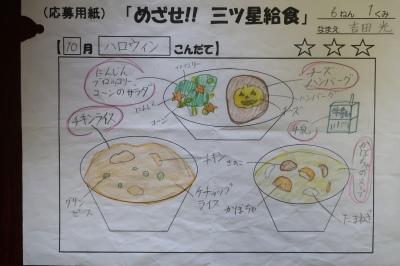 (応募用紙) 「めざせ!! 三ツ星給食」
6ねん 1くみ
なまえ 吉田 光
【10月 ハロウィン こんだて】
☆☆☆
にんじん
ブロッコリー
コーンのサラダ
ブロッコリー
にんじん
コーン
チーズ
ハンバーグ
ハンバーグ
チーズ
牛乳
牛乳
チキンライス
チキン
グリンピース
ケチャップ
ライス
かぼちゃのスープ
きのこ
かぼちゃ
たまねぎ